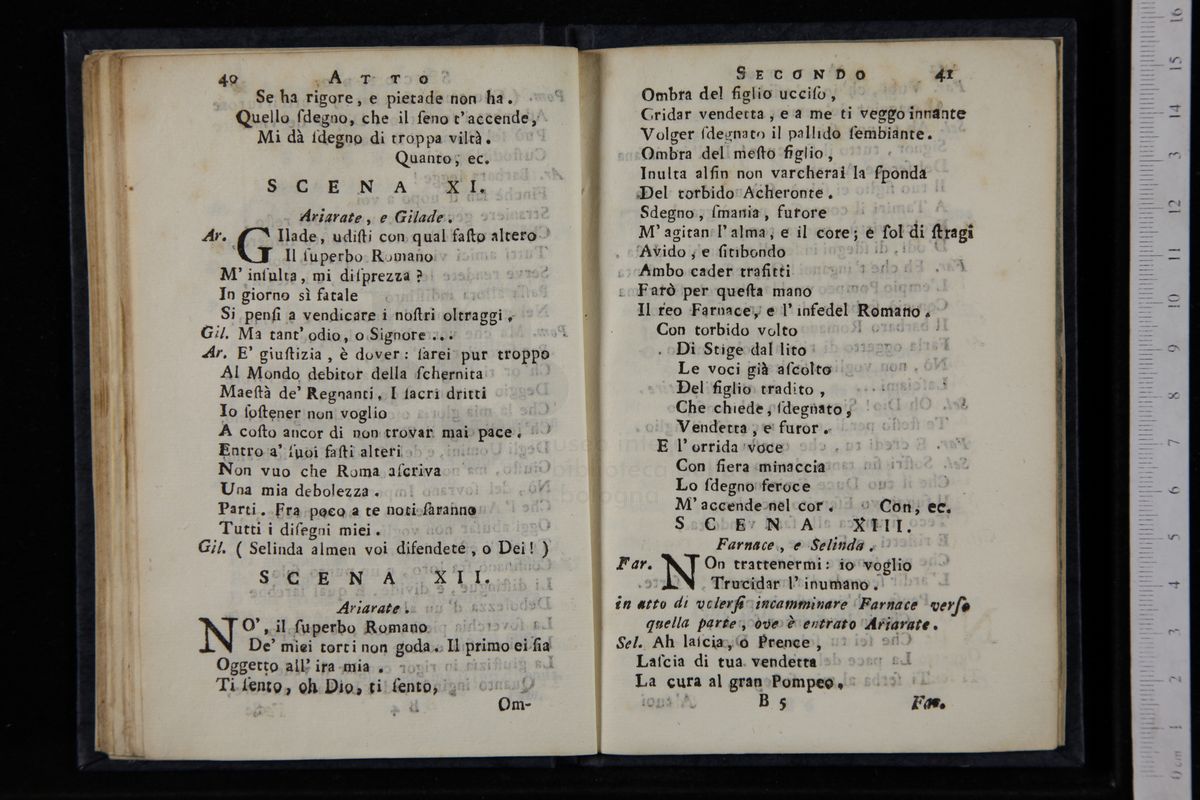 40 ATTO
Se ha rigore, e pietade non ha.
Quello ſdegno, che il ſeno t'accende,
Mi dà ſdegno di troppa viltà.
Quanto, ec.
SCENA XI.
Ariarate, e Gilade.
Ar. GIlade, udiſti con qual faſto altero
Il ſuperbo Romano
M' inſulta, mi diſprezza?
In giorno sì fatale
Si penſi a vendicare i noſtri oltraggi.
Gil. Ma tant' odio, o Signore ...
Ar. E' giuſtizia, è dover: ſarei pur troppo
Al Mondo debitor della ſchernita
Maeſtà de' Regnanti. I ſacri dritti
Io ſoſtener non voglio
A coſto ancor di non trovar mai pace.
Entro a' ſuoi faſti alteri
Non vuo che Roma aſcriva
Una mia debolezza.
Parti. Fra poco a te noti ſaranno
Tutti i diſegni miei.
Gil. ( Selinda almen voi difendete, o Dei! )
SCENA XII.
Ariarate.
NO', il ſuperbo Romano
De' miei torti non goda. Il primo ei ſia
Oggetto all' ira mia.
Ti ſento, oh Dio, ti ſento,
Om-
SECONDO 41
Ombra del figlio ucciſo,
Gridar vendetta, e a me ti veggo innante
Volger ſdegnato il pallido ſembiante.
Ombra del meſto figlio,
Inulta alfin non varcherai la ſponda
Del torbido Acheronte.
Sdegno, ſmania, furore
M' agitan l' alma, e il core; e ſol di ſtragi
Avido, e ſitibondo
Ambo cader trafitti
Farò per queſta mano
Il reo Farnace, e l' infedel Romano.
Con torbido volto
Di Stige dal lito
Le voci già aſcolto
Del figlio tradito,
Che chiede, ſdegnato,
Vendetta, e furor.
E l' orrida voce
Con fiera minaccia
Lo ſdegno feroce
M' accende nel cor. Con, ec.
SCENA XIII.
Farnace, e Selinda.
Far. NOn trattenermi: io voglio
Trucidar l' inumano.
in atto di volerſi incamminare Farnace verſo
quella parte, ove è entrato Ariarate.
Sel. Ah laſcia, o Prence,
Laſcia di tua vendetta
La cura al gran Pompeo.
B 5 Far.